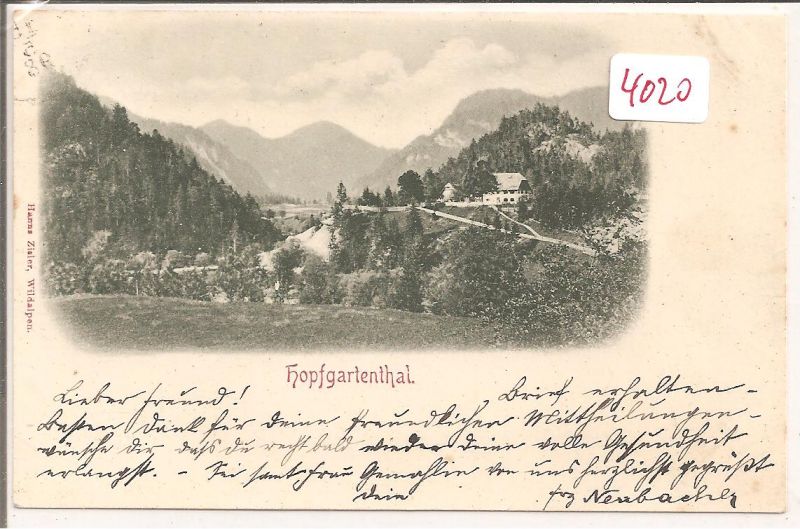 4020
Hanns Zisler, Wildalpen.
Hopfgartenthal.
Lieber Freund! Brief erhalten -
Besten Dank für deine freundlichen Mittheilungen -
wünsche dir daß du recht bald wieder deine volle Gesundheit
erlangst. - Sei samt Frau Gemahlin von uns herzlichst gegrüßt
dein Neubacher